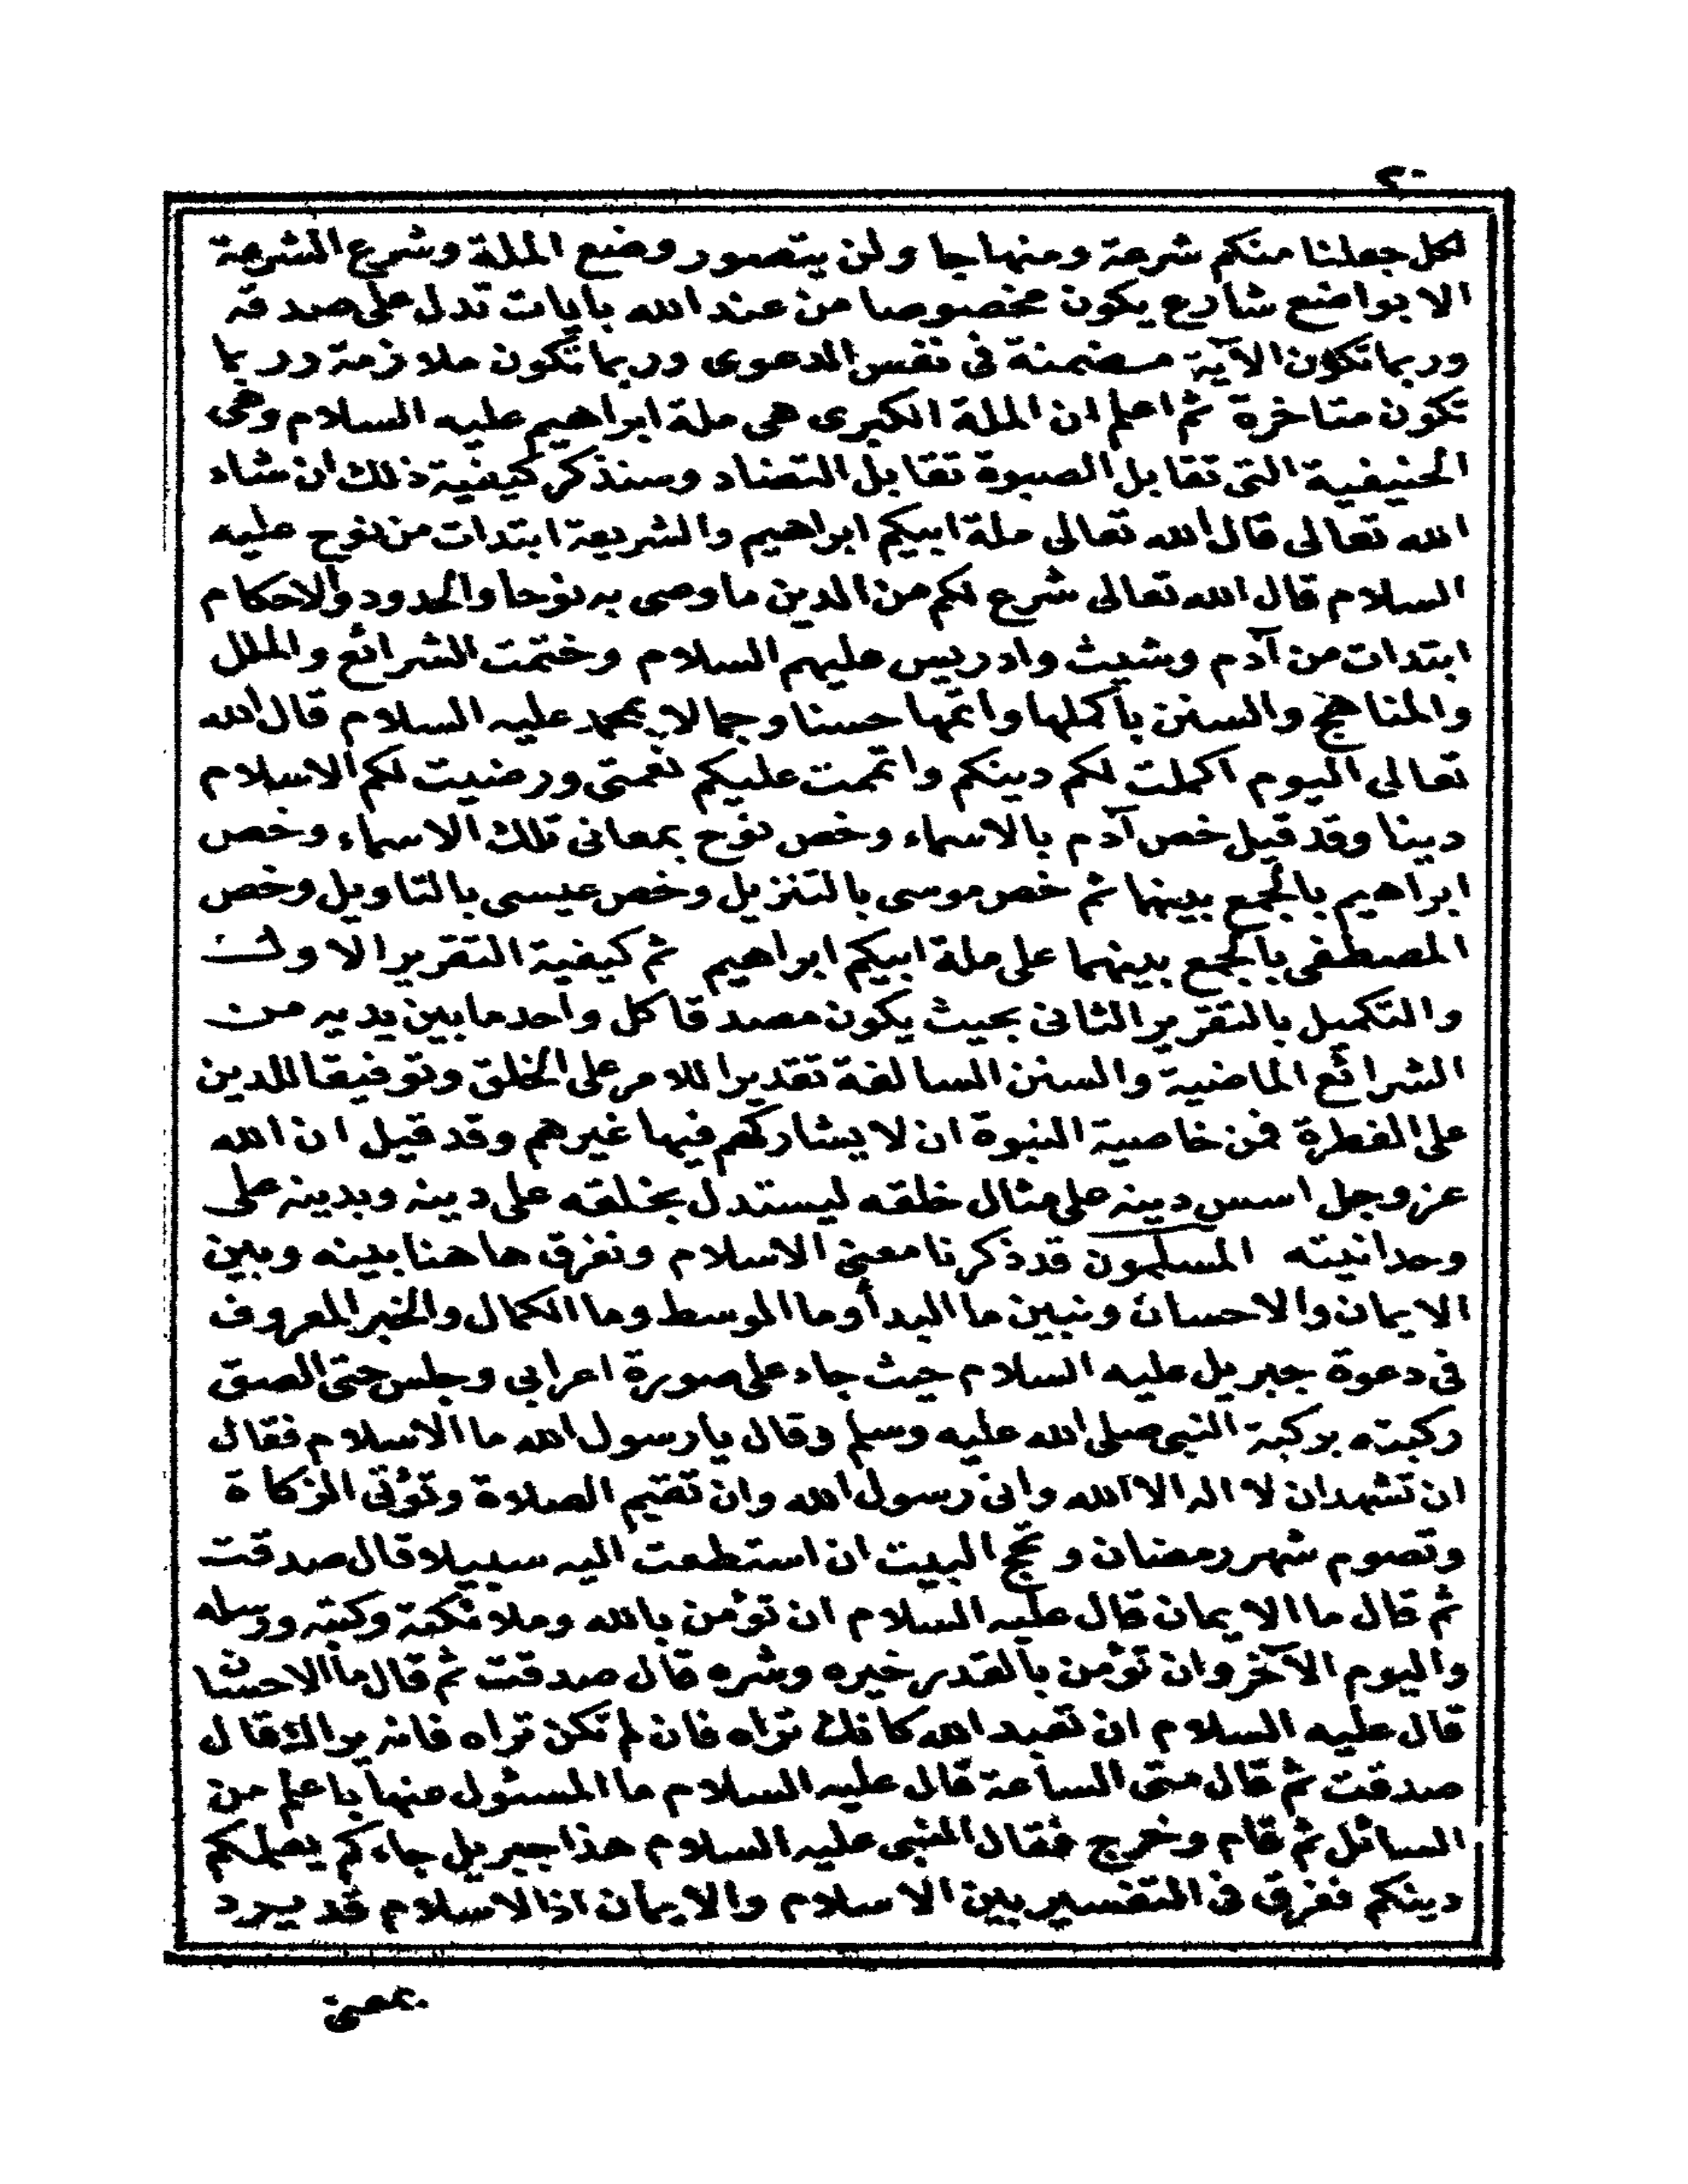 ٢٠
لكل جعلنا منكم شرعة ومنهاجا ولن يتصور وضع الملة وشرع الشرعة
الا بواضع شارع يكون مخصوصا من عند الله بايات تدل على صدقه
وربما تكون الآية مضمنة فى نفس الدعوى وربما تكون ملازمة وربما
تكون متاخرة ثم اعلم ان الملة الكبرى هى ملة ابراهيم عليه السلام وهى
الحنيفية التى تقابل الصبوة تقابل التضاد وسنذكر كيفية ذلك ان شاء
الله تعالى قال الله تعالى ملة ابيكم ابراهيم والشريعة ابتدات من نوح عليه
السلام قال الله تعالى شرع لكم من الدين ما وصى به نوحا والحدود والاحكام
ابتدات من آدم وشيث وادريس عليهم السلام وختمت الشرائع والملل
والمناهج والسنن بأكملها واتمها حسنا وجمالا بمحمد عليه السلام قال الله
تعالى اليوم اكملت لكم دينكم واتممت عليكم نعمتى ورضيت لكم الاسلام
دينا وقد قيل خص آدم بالاسماء وخص نوح بمعانى تلك الاسماء وخص
ابراهيم بالجمع بينها ثم خص موسى بالتنزيل وخص عيسى بالتاويل وخص
المصطفى بالجمع بينهما على ملة ابيكم ابراهيم ثم كيفية التقرير الاول
والتكميل بالتقرير الثانى بحيث يكون مصدقا كل واحد ما بين يديه من
الشرائع الماضية والسنن السالفة تقديرا للامر على الخلق وتوفيقا للدين
على الفطرة فمن خاصية النبوة ان لا يشاركهم فيها غيرهم وقد قيل ان الله
عز وجل اسس دينه على مثال خلقه ليستدل بخلقه على دينه وبدينه على
وحدانيته المسلمون قد ذكرنا معنى الاسلام ونفرق هاهنا بينه وبين
الايمان والاحسان ونبين ما المبدأ وما الموسط وما الكمال والخبر المعروف
فى دعوة جبريل عليه السلام حيث جاء على صورة اعرابى وجلس حتى الصق
ركبته بركبة النبى صلى الله عليه وسلم وقال يا رسول الله ما الاسلام فقال
ان تشهد ان لا اله الا الله وانى رسول الله وان تقيم الصلاة وتؤتى الزكاة
وتصوم شهر رمضان وتحج البيت ان استطعت اليه سبيلا قال صدقت
ثم قال ما الايمان قال عليه السلام ان تؤمن بالله وملائكته وكتبه ورسله
واليوم الآخر وان تؤمن بالقدر خيره وشره قال صدقت ثم قال ما الاحسان
قال عليه السلام ان تعبد الله كانك تراه فان لم تكن تراه فانه يراك قال
صدقت ثم قال متى الساعة قال عليه السلام ما المسئول عنها باعلم من
السائل ثم قام وخرج فقال النبى عليه السلام هذا جبريل جاءكم يعلمكم
دينكم ففرق فى التفسير بين الاسلام والايمان اذ الاسلام قد يرد
بمعنى